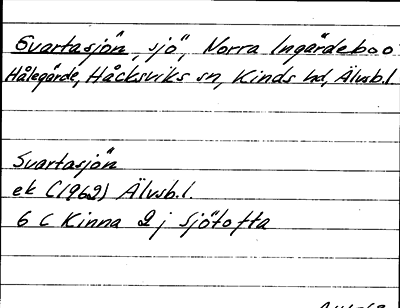 Svartasjön, sjö, Norra Ingärdebo o
Hålegärde, Håcksviks sn, Kinds hd, Älvsb.l.
Svartasjön
ek (1962) Älvsb.l.
6 C Kinna 2 j Sjötofta